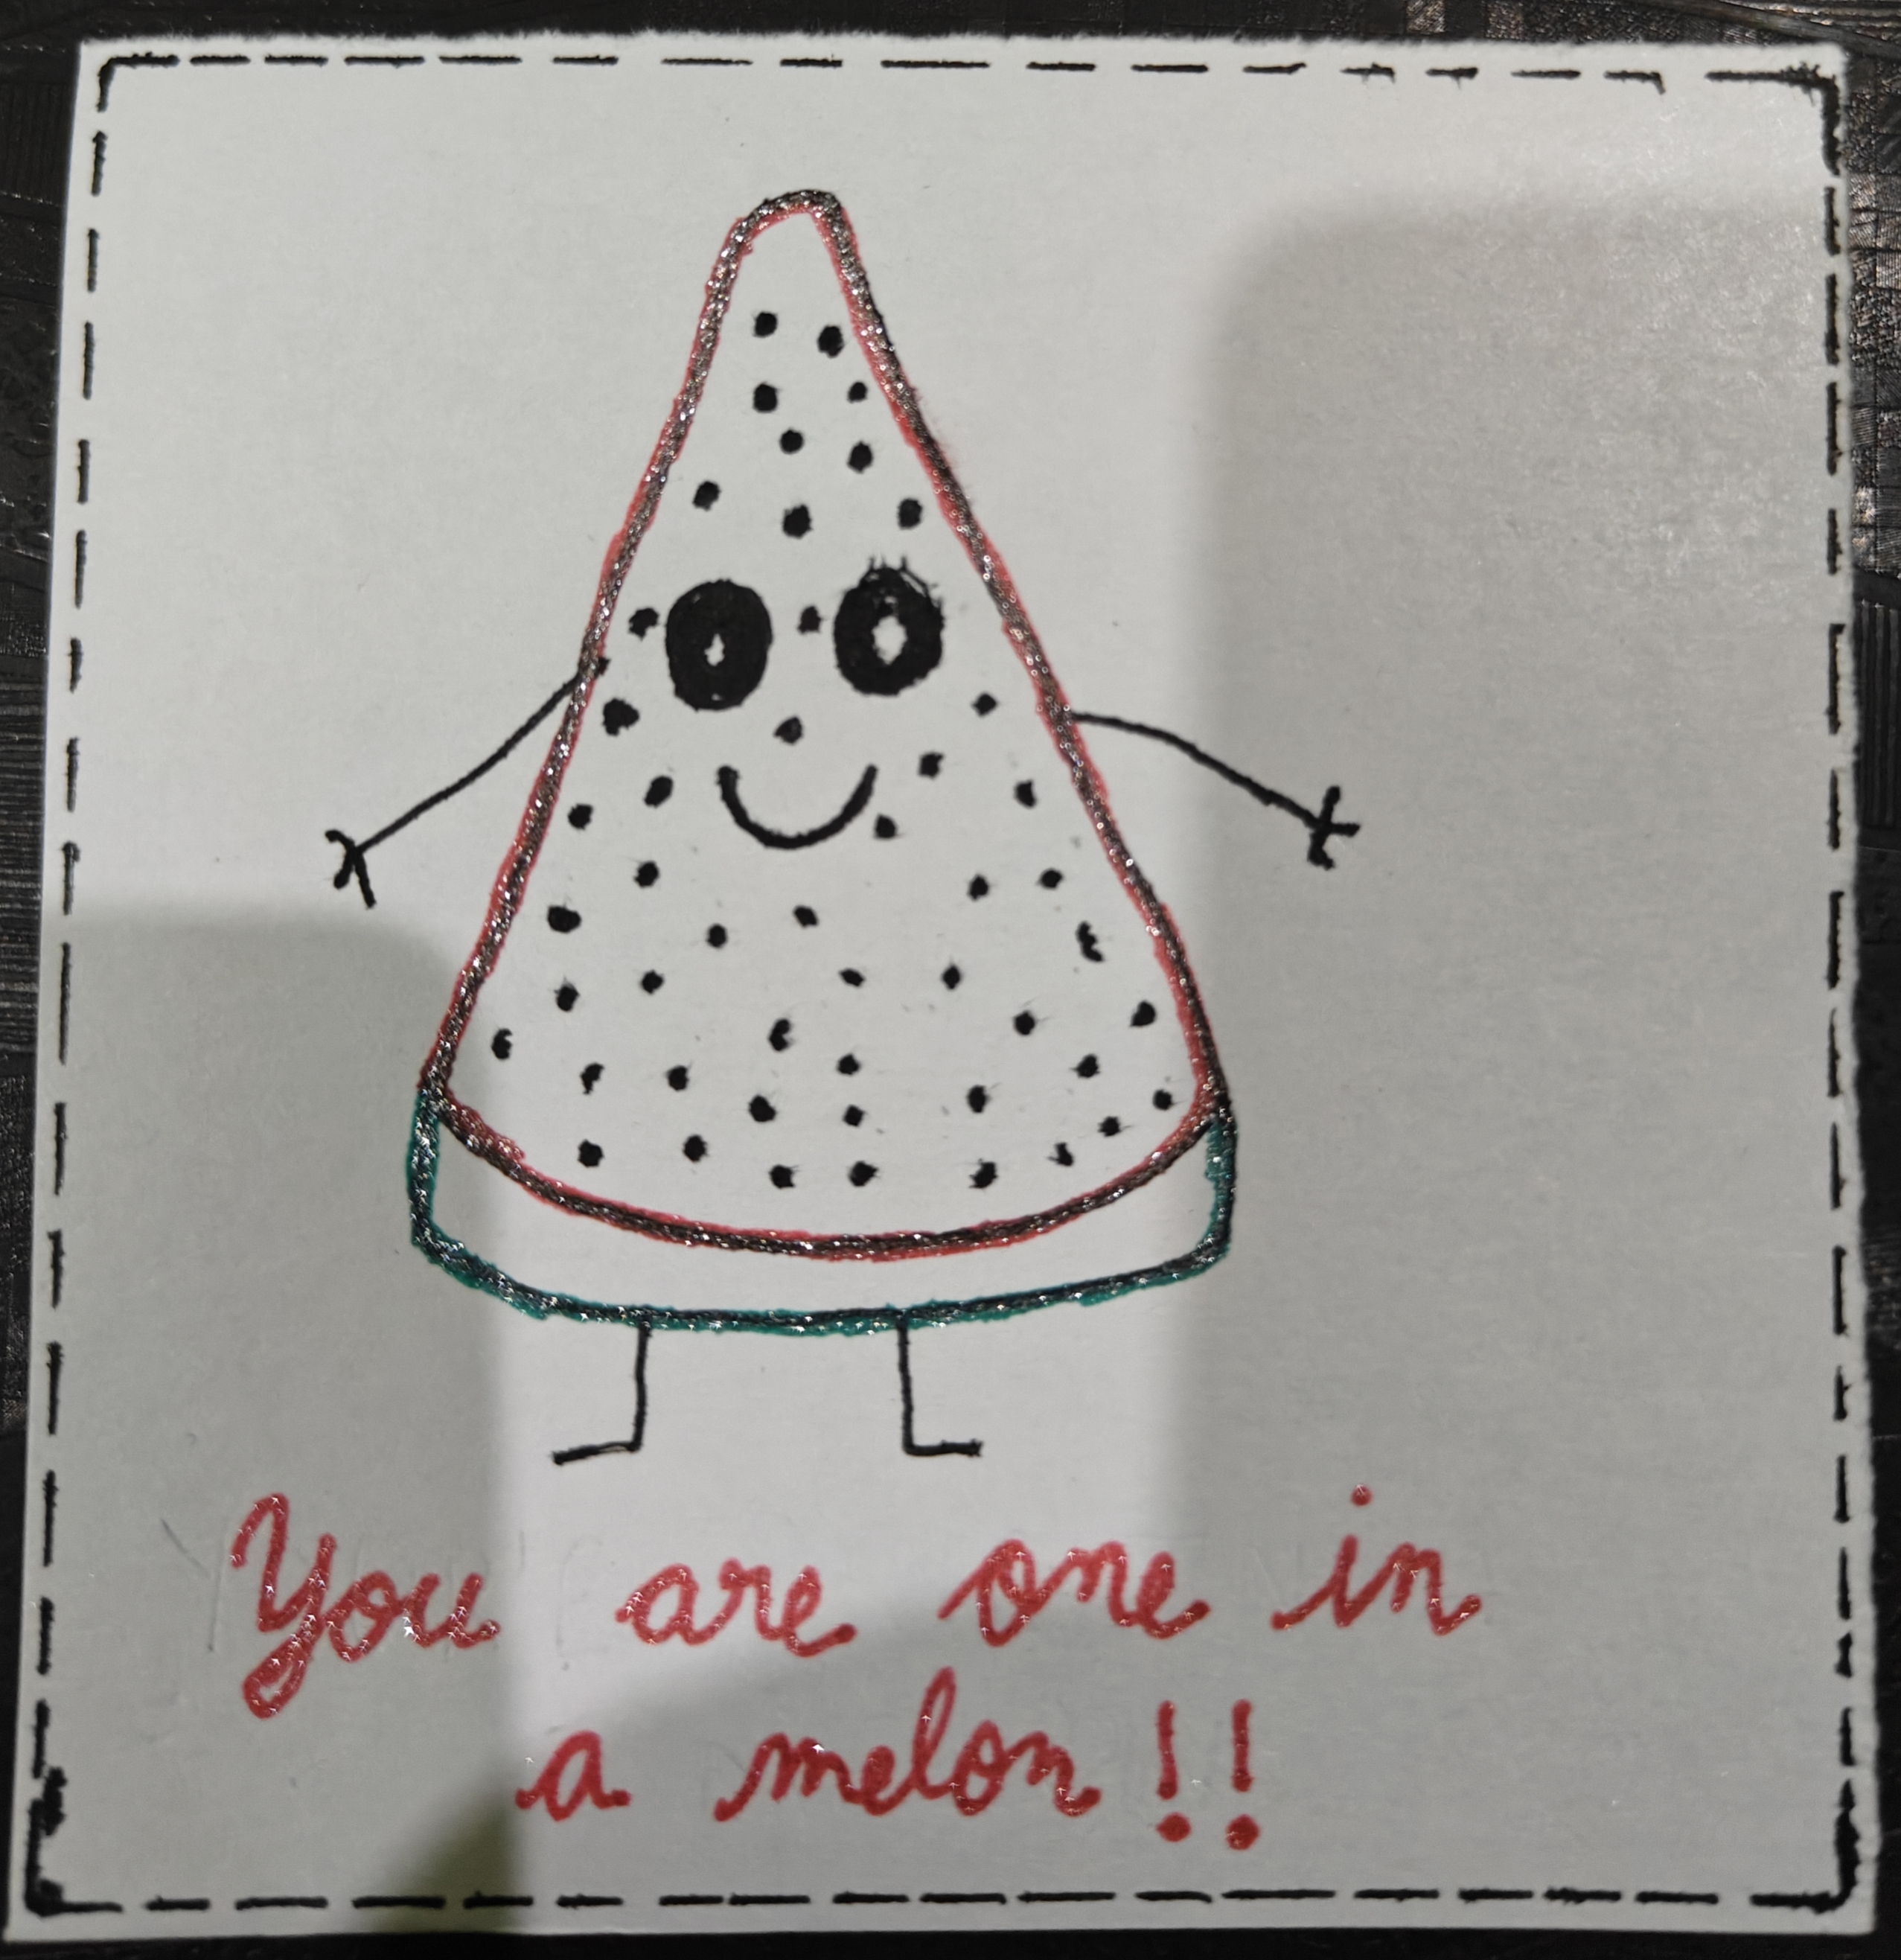 You are one in
a melon!!